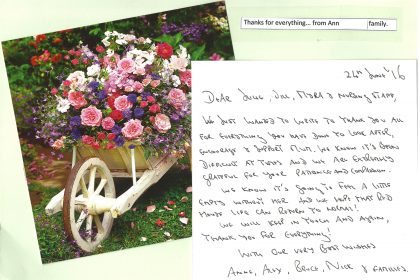 Thanks for everything... from Ann family.
24th June '16
Dear Julie, Jill, Moira & Nursing Staff,
We just wanted to write to thank you all
for everything you have done to look after,
encourage & support Mum. We know it's been
difficult at times and we are extremely
grateful for your patience and compassion.
We know it's going to feel a little
empty without her and we hope that Dad
life can return to normal!
We will keep in touch and again,
thank you for everything!
With our very best wishes
Anne, Ally, Bruce, Nick & families